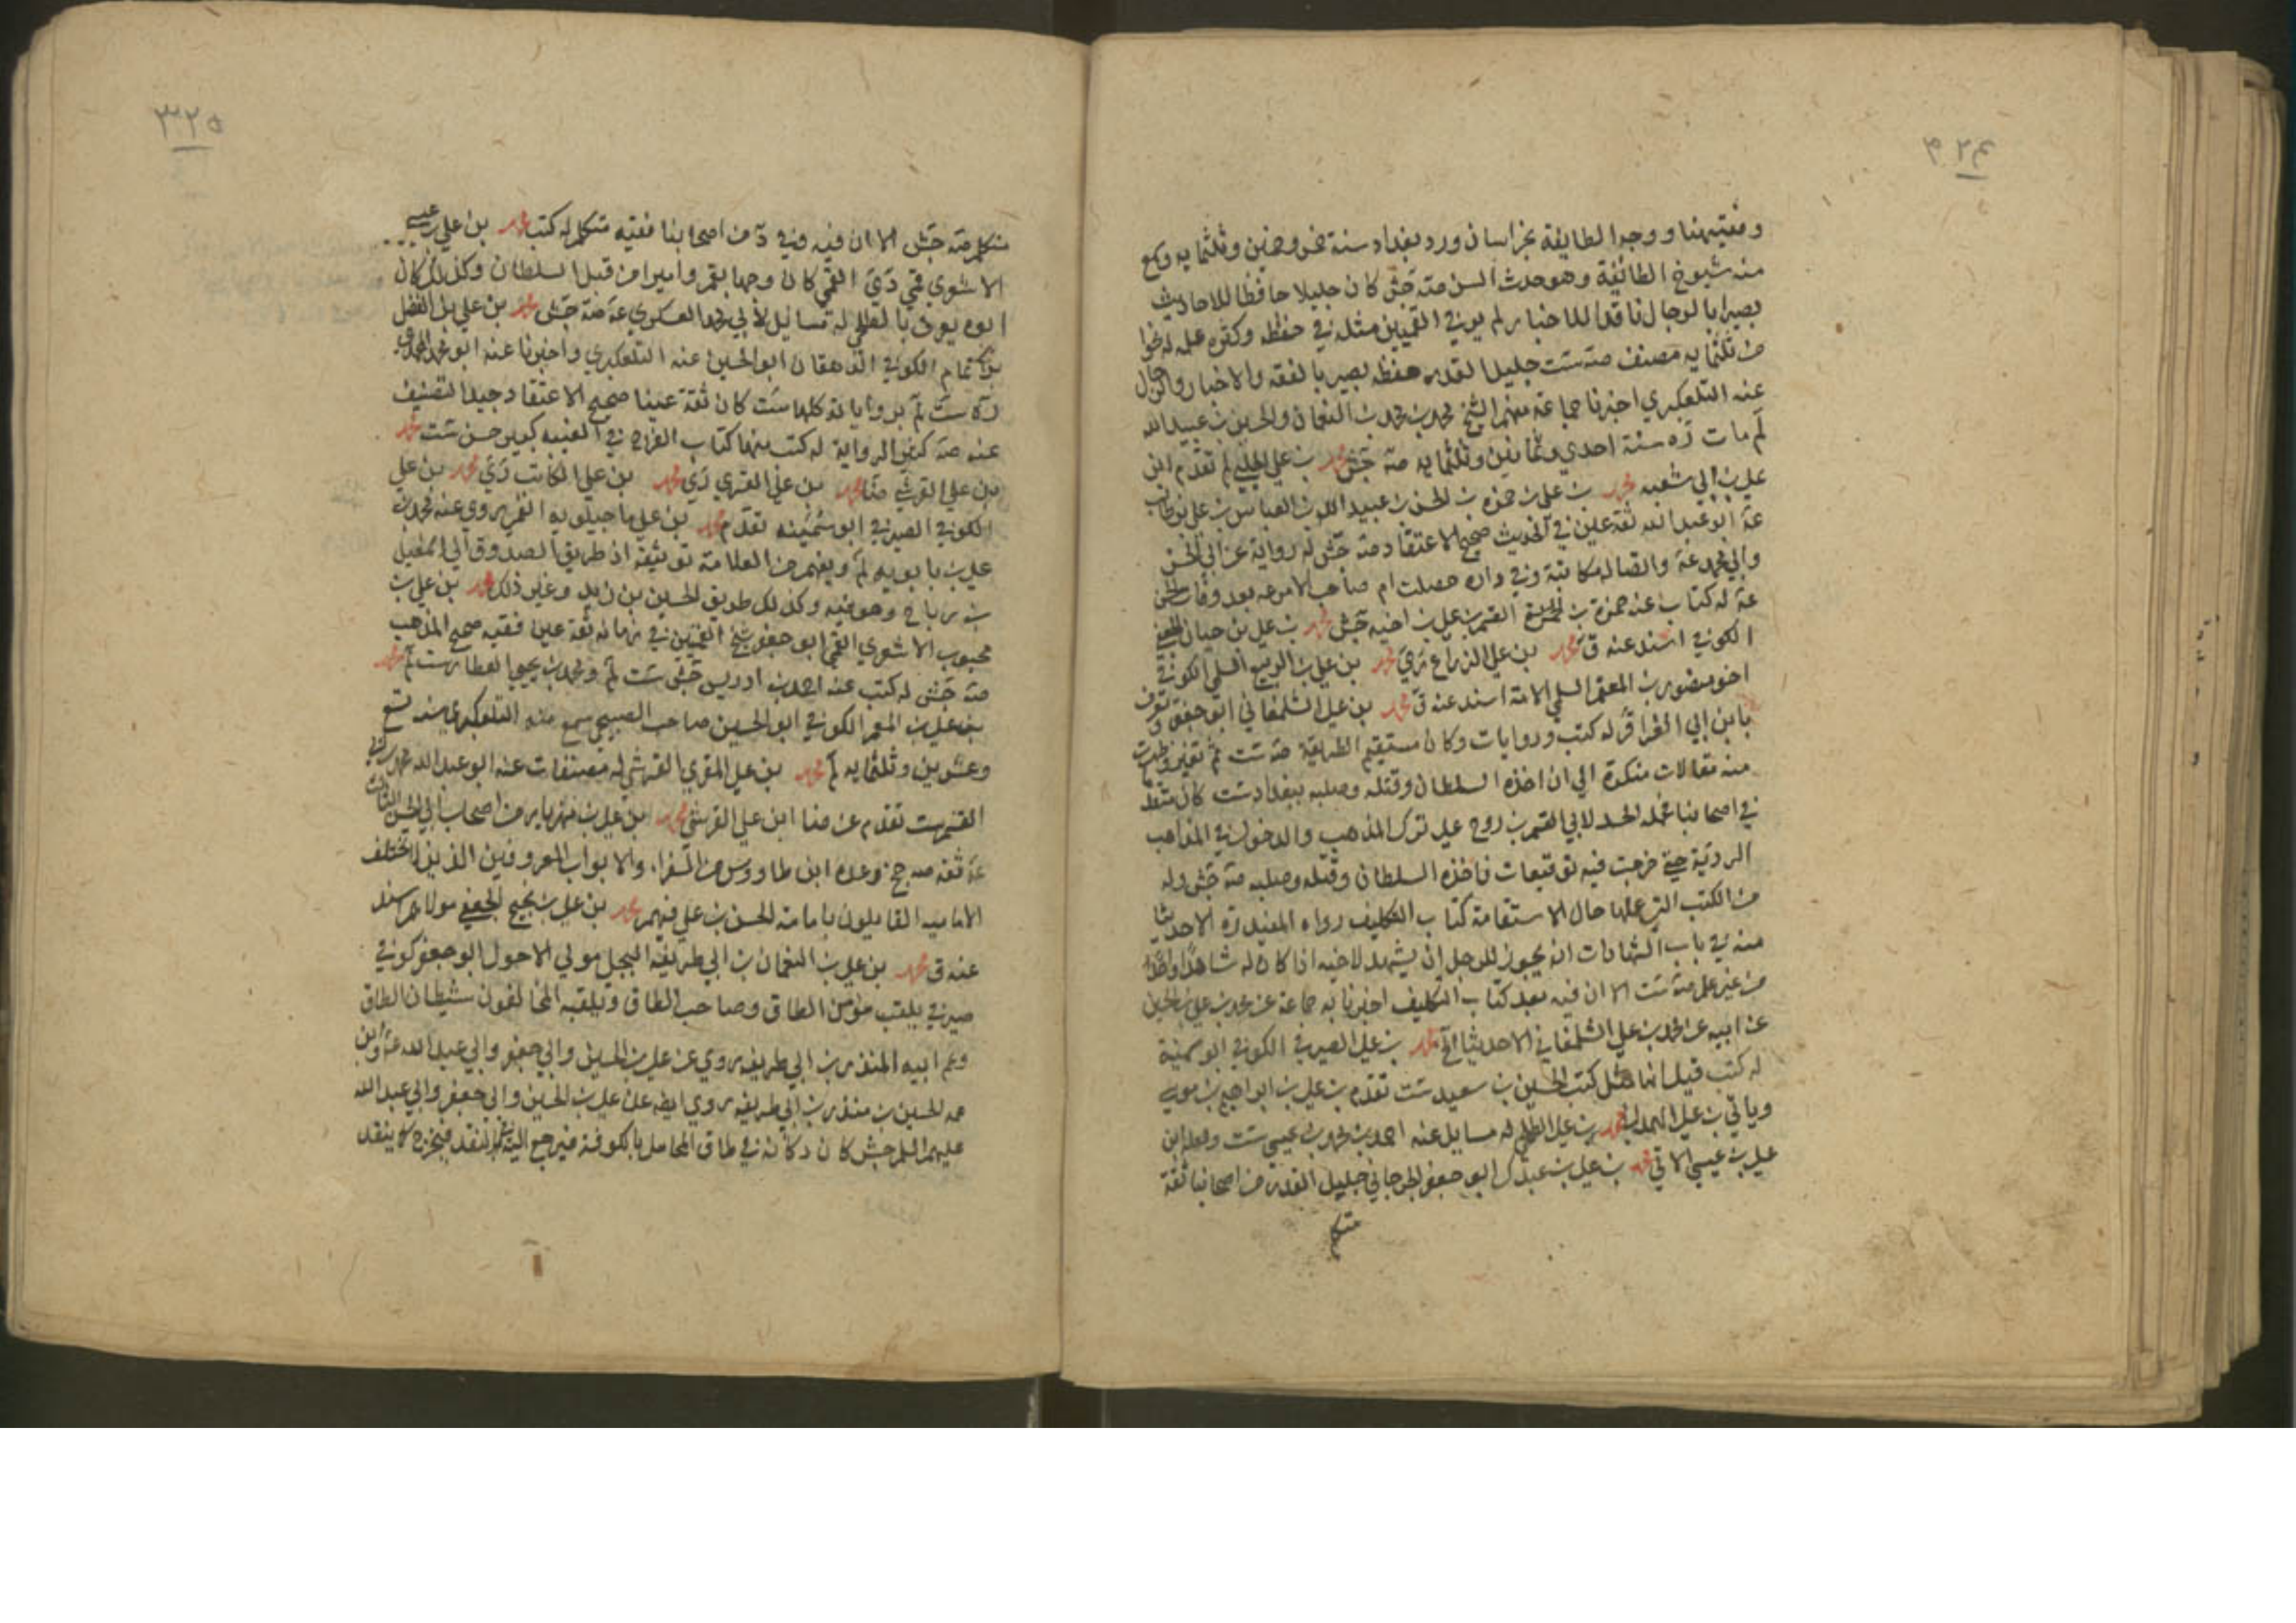 ٣٢٤
وفقيهنا ووجه الطايفة بخراسان ورد بغداد سنة خمس وخمسين وثلثمايه وسمع
منه شيوخ الطائفة وهو حدث السن صه جش كان جليلا حافظا للاحاديث
بصيرا بالرجال ناقدا للاخبار لم ير في القميين مثله في حفظه وكثره علمه له نحوا
من ثلثمايه مصنف صه ست جليل القدر حفظه بصير بالفقه والاخبار والرجال
عنه التلعكبري اخبرنا جماعة منهم الشيخ محمد بن محمد بن النعمان والحسين بن عبيد الله
لم مات ره سنة احدي وثمانين وثلثمايه صه جش محمد بن علي الحلبي لم تقدم ابن
علي بن ابي شعبه محمد بن علي بن حمزه بن الحسن بن عبيد الله بن العباس بن علي بن ابي طالب
عة ابو عبد الله ثقة عين في الحديث صحيح الاعتقاد صه جش له رواية عن ابي الحسن
وابي محمد عة وايضا له مكاتبة وفي داره حصلت ام صاحب الامر عه بعد وفات الحسن
عة له كتاب عنه حمزة بن القسم بن علي بن اخيه جش محمد بن علي بن حيان الجعفي
الكوفي اسند عنه ق محمد بن علي الزراع محمد بن علي بن الربيع السلمي الكوفي
اخو منصور بن المعتمر السلمي لامه اسند عنه ق محمد بن علي الشلمغاني ابو جعفر ويعرف
بابن ابي العزاقر له كتب وروايات وكان مستقيم الطريقة صه ست ثم تغير وظهرت
منه مقالات منكرة الي ان اخذه السلطان وقتله وصلبه ببغداد ست كان متقدما
في اصحابنا فحمله الحسد لابي القسم بن روح علي ترك المذهب والدخول في المذاهب
الردية حتي خرجت فيه توقيعات فاخذه السلطان وقتله وصلبه صه جش وله
من الكتب التي عملها حال الاستقامة كتاب التكليف رواه المفيد ره الا حديثا
منه في باب الشهادات انه يجوز للرجل ان يشهد لاخيه اذا كان له شاهدا واحدا
من غير علم صه ست الا ان فيه بعد كتاب التكليف اخبرنا به جماعة عن محمد بن علي بن الحسين
عن ابيه عن محمد بن علي الشلمغاني الا حديثا الخ محمد بن علي الصيرفي الكوفي ابو سمينة
له كتب قيل انها مثل كتب الحسين بن سعيد ست تقدم بن علي بن ابراهيم بن موسي
وياتي بن علي الهمداني محمد بن علي الطلحي له مسايل عنه احمد بن محمد بن عيسي ست ولعله ابن
علي بن عيسي الاتي محمد بن علي بن عبدك ابو جعفر الجرجاني جليل القدر من اصحابنا ثقة
متكلم
٣٢٥
متكلم صه جش الا ان فيه وفي د من اصحابنا فقيه متكلم له كتب محمد بن علي بن عيسي
الاشعري قمي دي القمي كان وجها بقم واميرا من قبل السلطان وكذلك كان
ابوه يعرف بالطلحي له مسائل لابي محمد العسكري عة صه جش محمد بن علي بن الفضل
بن تمام الكوفي الدهقان ابو الحسين عنه التلعكبري واخبرنا عنه ابو محمد المحمدي
ره ست لم بروايات كلها ست كان ثقة عينا صحيح الاعتقاد جيد التصنيف
عنه صه كثير الرواية له كتب منها كتاب الفرج في الغيبه كبير حسن ست محمد
بن علي القرشي محمد بن علي القسري دي محمد بن علي الكاتب دي محمد بن علي
الكوفي الصيرفي ابو سمينه تقدم محمد بن علي ماجيلويه القمي روي عنه محمد بن
علي بن بابويه لم ويفهم من العلامة توثيقه اذ طريق الصدوق الي اسمعيل
بن رباح وهو فيه وكذلك طريق الحسين بن زيد وغير ذلك محمد بن علي بن
محبوب الاشعري القمي ابو جعفر شيخ القميين في زمانه ثقة عين فقيه صحيح المذهب
صه جش له كتب عنه احمد بن ادريس جش ست لم ومحمد بن يحيي العطار ست لم محمد
بن علي بن المعمر الكوفي ابو الحسين صاحب الصبيحي سمع منه التلعكبري سنه تسع
وعشرين وثلثمايه لم محمد بن علي المقري القرشي له مصنفات عنه ابو عبد الله محمد بن
القسم ست تقدم محمد بن علي القرشي محمد بن علي بن مهزيار من اصحاب ابي الحسن الثالث
عة ثقه صه ج وعده ابن طاووس من السفراء والابواب المعروفين الذين لا يختلف
الاماميه القايلون بامامة الحسن بن علي فيهم محمد بن علي بن نجيح الجعفي مولاهم اسند
عنه ق محمد بن علي بن النعمان بن ابي طريفه البجلي مولي الاحول ابو جعفر كوفي
صيرفي يلقب مؤمن الطاق وصاحب الطاق ويلقبه المخالفون شيطان الطاق
وعم ابيه المنذر بن ابي طريفه روي عن علي بن الحسين وابي جعفر وابي عبد الله عة وابن
عمه الحسين بن منذر بن ابي طريفه روي ايضه عن علي بن الحسين وابي جعفر وابي عبد الله
عليهم السلم جش كان دكانه في طاق المحامل بالكوفة فيرجع اليه في النقد فيخرج كما ينقد